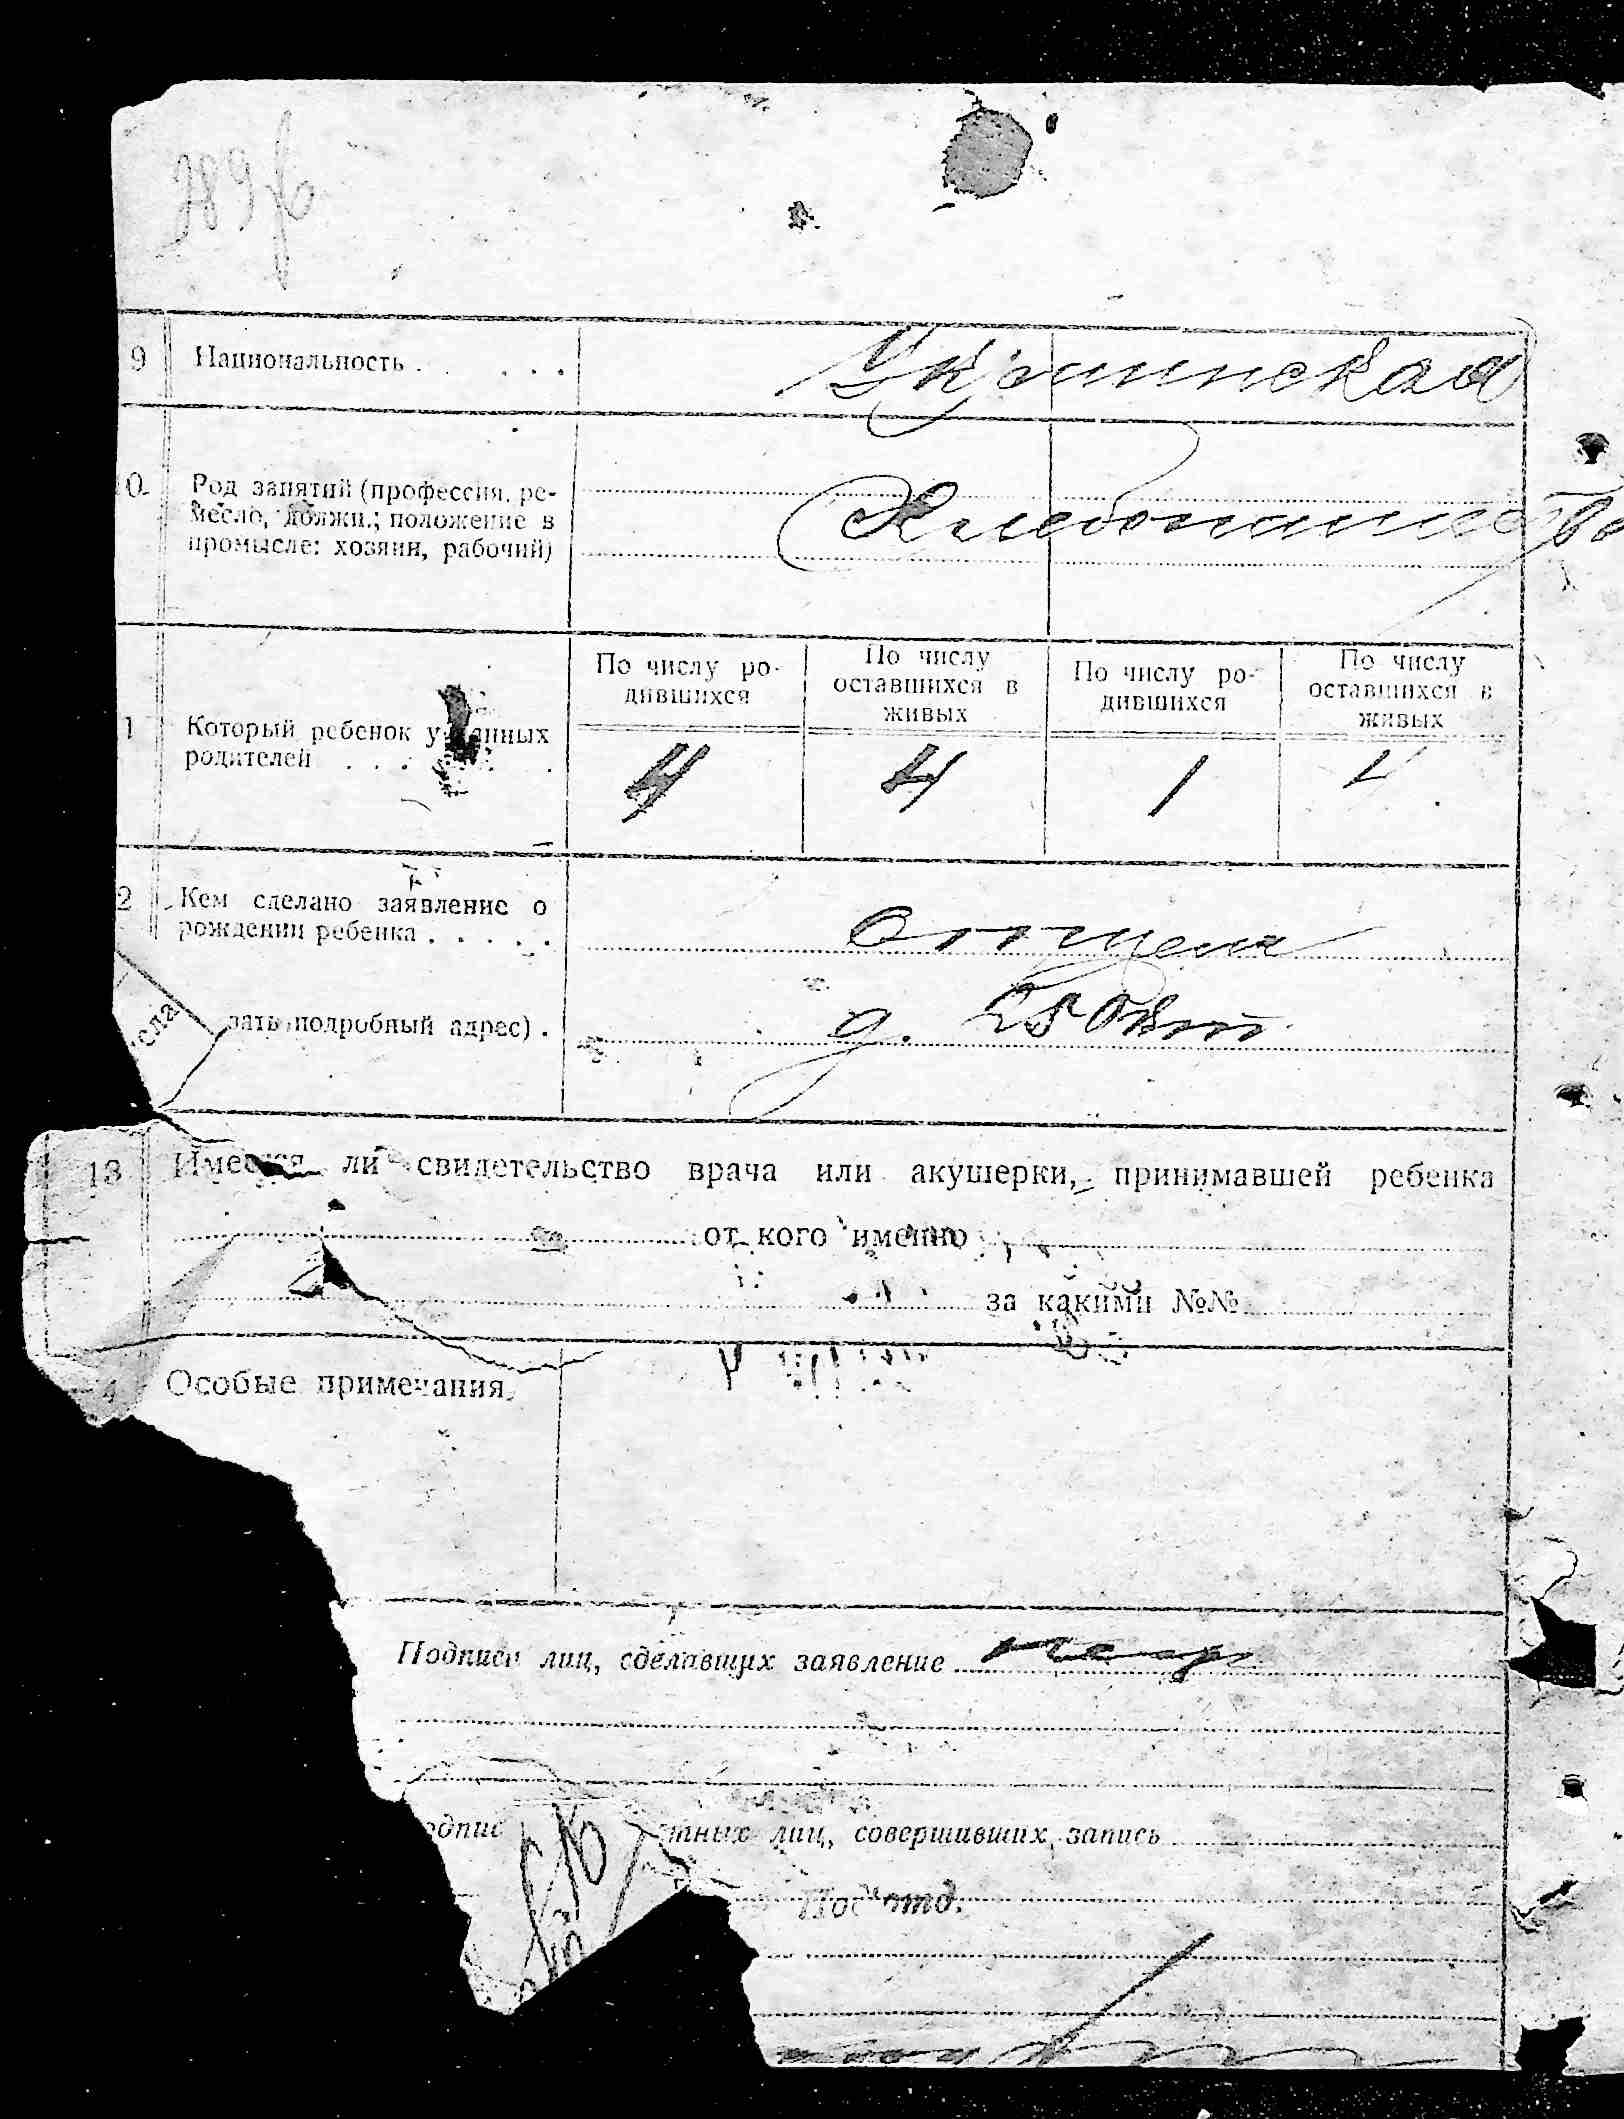 9 Национальность . . . . . Украинская
10. Род занятий (профессия, ре-
месло, должн.; положение в
промысле: хозяин, рабочий)
Хлебопашество
По числу ро-
дившихся
По числу
оставшихся в
живых
По числу ро-
дившихся
По числу
оставшихся в
живых
1 Который ребенок у данных
родителей . . . .
4 4 1
2 Кем сделано заявление о
рождении ребенка . . . . .
Отцем
сла
зать подробный адрес) .
д.
13 Имеется ли свидетельство врача или акушерки, принимавшей ребенка
от кого именно
за какими №№
4 Особые примечания
Подписи лиц, сделавших заявление
одпис
тных лиц, совершивших запись
отд.